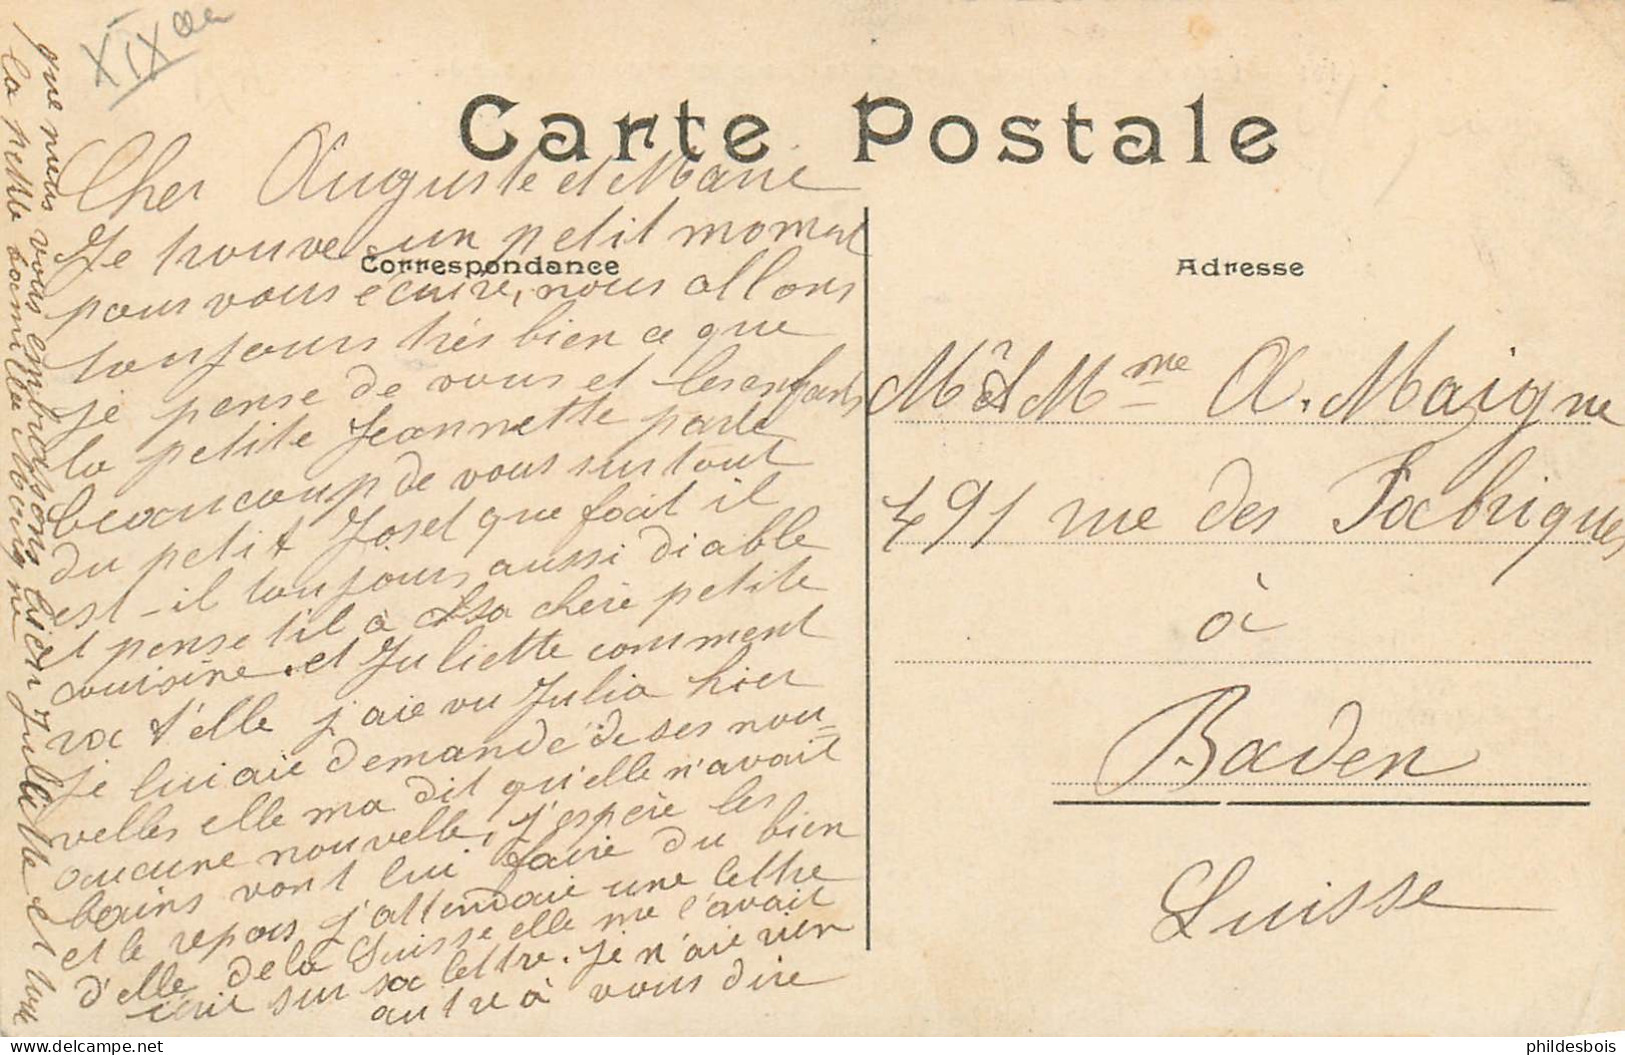 XIX
Carte Postale
Correspondance
Adresse
Cher Auguste et Marie
Je trouve un petit moment
pour vous écrire, nous allons
toujours très bien ce que
je pense de vous et les enfants
la petite Jeannette parle
beaucoup de vous surtout
du petit Josel que fait il
est-il toujours aussi diable
et pense til à sa chère petite
cuisine. et Juliette comment
va t'elle j'aie vu Julia hier
je lui aie demandé de ses nou-
velles elle ma dit qu'elle n'avait
aucune nouvelle, j'espère les
bains vont lui faire du bien
et le repos j'attendaie une lettre
d'elle de la Suisse elle me l'avait
écrit sur sa lettre. Je n'aie rien
autre à vous dire
que nous vous embrassons bien Juliette et
la petite famille Maigne
Mr et Mme A. Maigne
491 rue des Fabriques
à
Baden
Suisse
phildesbois
delcampe.net